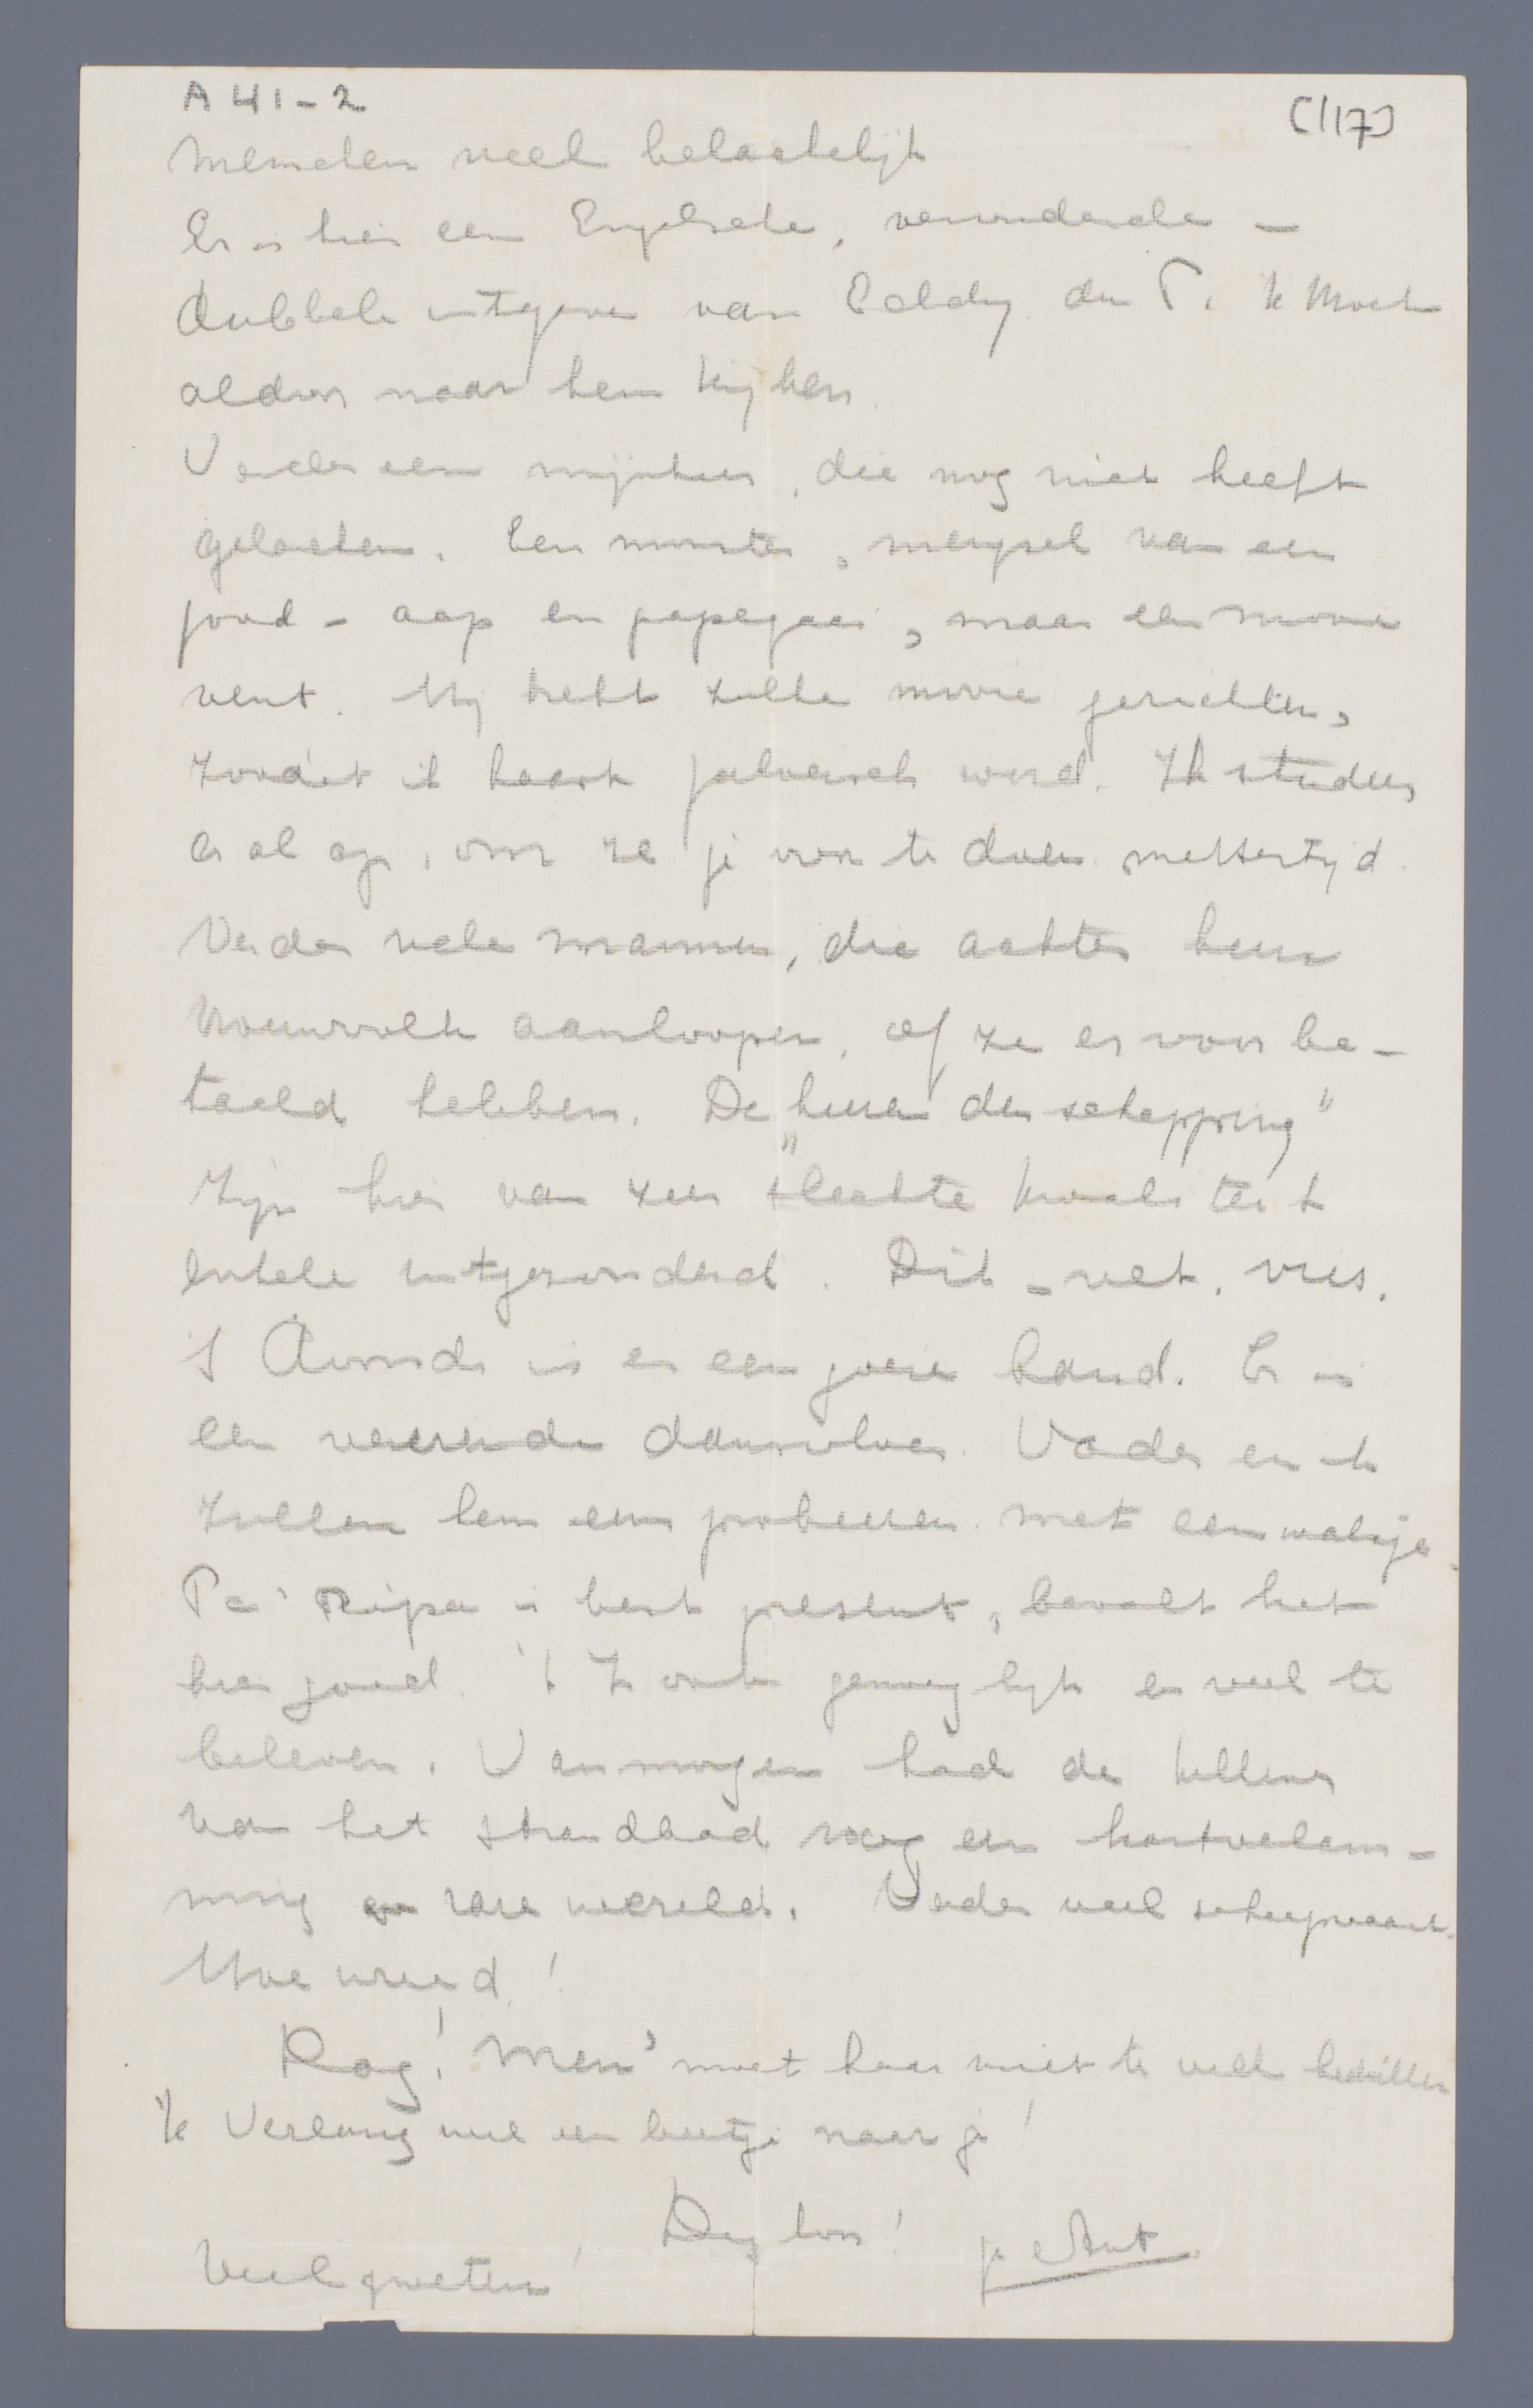 A 41-2
(117)
Menschen veel belachelijk
Er is hier een Engelsche, verouderde -
dubbele uitgave van Eddy du P. 'k Moet
aldoor naar hem kijken.
Verder een mijnheer, die nog niet heeft
gelachen. Een monster, mengsel van een
jood - aap en papegaai, maar een mooie
vent. Hij trekt zulke mooie gezichten,
zoodat ik haast jaloersch word. Ik studeer
er al op, om ze je voor te doen mettertijd.
Verder vele mannen, die achter hun
vrouwvolk aanloopen, of ze ervoor be-
taald hebben. De "heeren der schepping"
zijn hier van zeer slechte kwaliteit
enkele uitgezonderd. Dik - vet, vies.
's Avonds is er een goeie band. Er is
een veerende dansvloer. Vader en ik
zullen hem eens probeeren met een walsje.
Pa is best present, bevalt het
hier goed. 't Is ook genoegelijk en veel te
beleven. Vanmorgen had de kellner
van het strandbad nog een hartverlam-
ming rare wereld. Verder veel scheepvaart.
Hoe wreed!
Dag! Men moet haar niet te veel bedrillen
'k Verlang wel een beetje naar je!
Dag hoor! je Ant
Veel groeten!